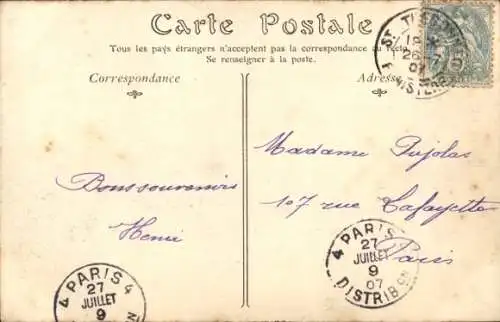 Carte Postale
Tous les pays étrangers n'acceptent pas la correspondance au recto.
Se renseigner à la poste.
Correspondance
Adresse
Bons souvenirs
Henri
Madame Pujolas
107 rue Lafayette
Paris
4 PARIS 4
27
JUILLET
9
4 PARIS
27
JUILLET
9
07
DISTRIB ON